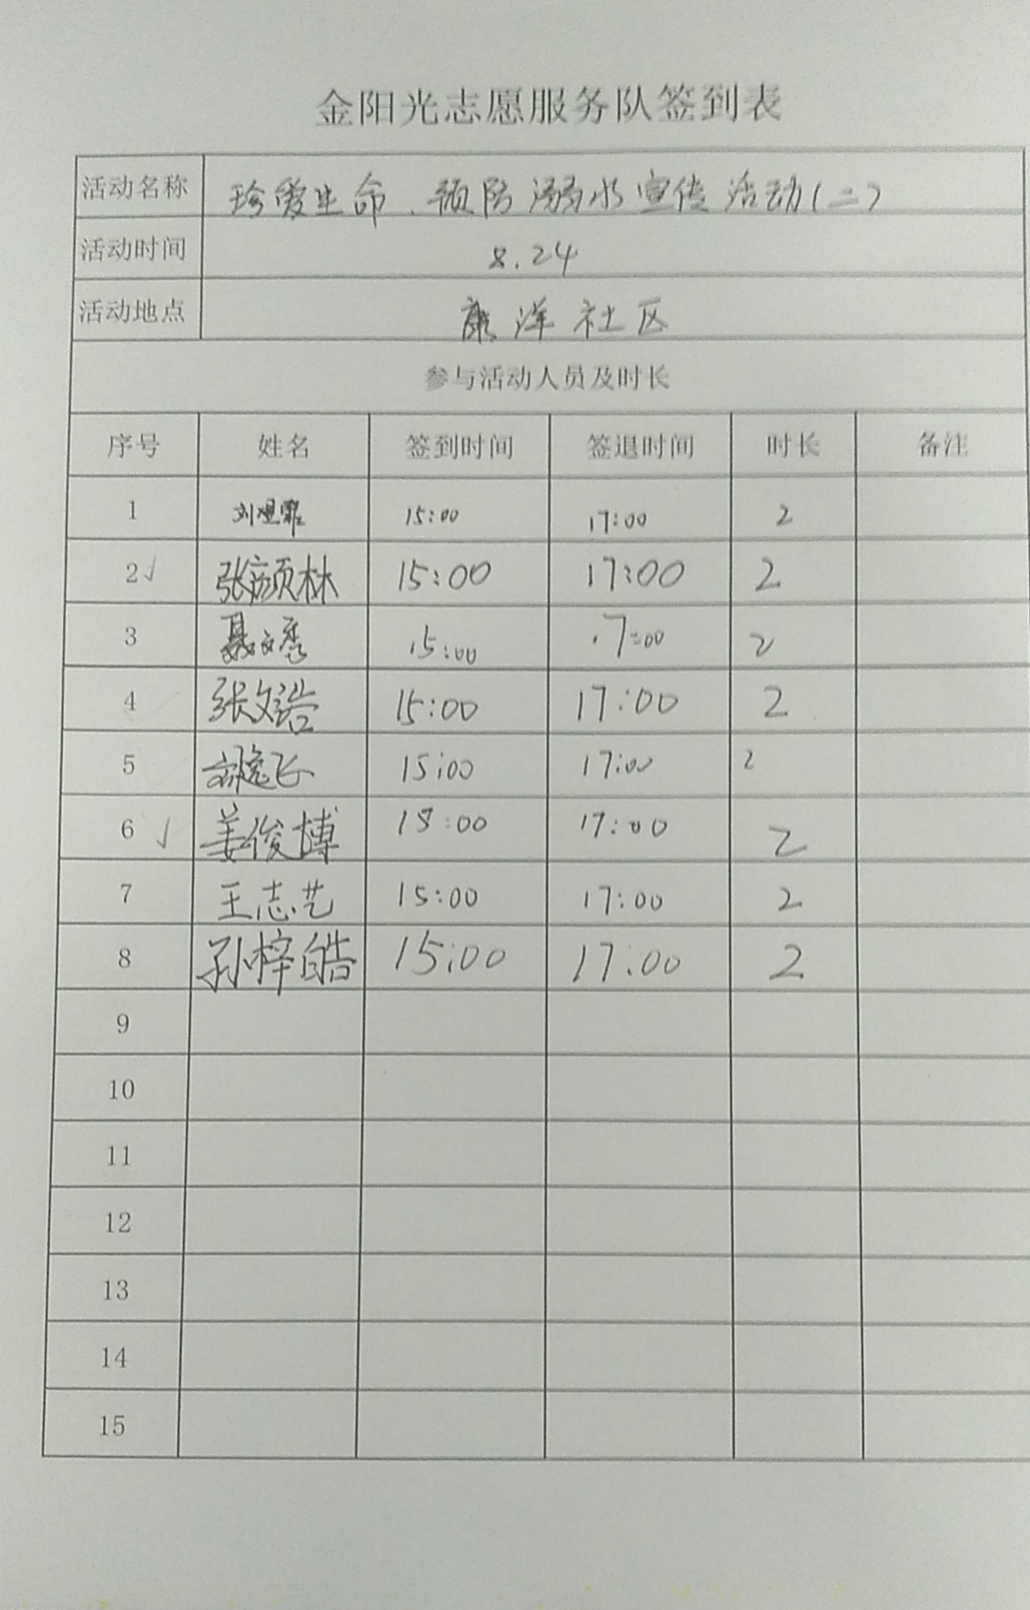 金阳光志愿服务队签到表
活动名称 珍爱生命、预防溺水宣传活动(二)
活动时间 8.24
活动地点 康洋社区
参与活动人员及时长
序号 姓名 签到时间 签退时间 时长 备注
1 15:00 17:00 2
2√ 张颜林 15:00 17:00 2
3 聂文秀 15:00 17:00 2
4 张文浩 15:00 17:00 2
5 15:00 17:00 2
6 √ 姜俊博 15:00 17:00 2
7 王志艺 15:00 17:00 2
8 孙梓皓 15:00 17:00 2
9
10
11
12
13
14
15